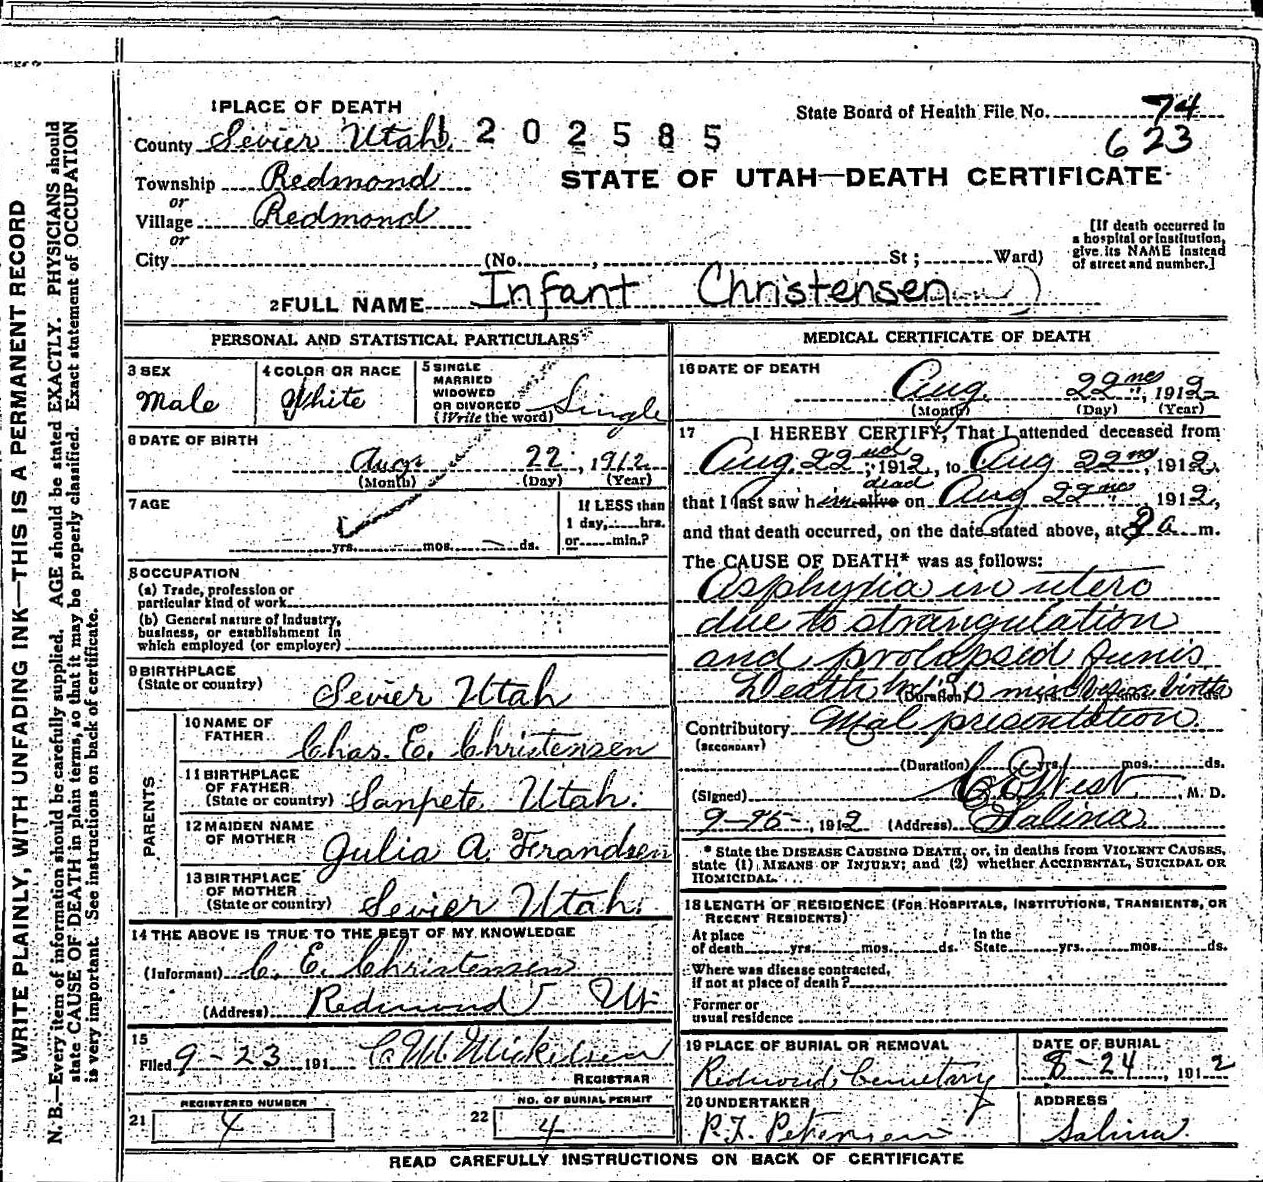 1 PLACE OF DEATH
County Sevier Utah. 202585
State Board of Health File No. 74
623
Township Redmond
or
Village Redmond
or
City (No. , St ; Ward)
STATE OF UTAH—DEATH CERTIFICATE
[If death occurred in
a hospital or institution,
give its NAME instead
of street and number.]
2 FULL NAME Infant Christensen
PERSONAL AND STATISTICAL PARTICULARS
3 SEX
Male
4 COLOR OR RACE
White
5 SINGLE
MARRIED
WIDOWED
OR DIVORCED
(Write the word) Single
6 DATE OF BIRTH
Aug 22, 1912
(Month) (Day) (Year)
7 AGE
yrs. mos. ds.
If LESS than
1 day, hrs.
or min.?
8 OCCUPATION
(a) Trade, profession or
particular kind of work
(b) General nature of Industry,
business, or establishment in
which employed (or employer)
9 BIRTHPLACE
(State or country) Sevier Utah
PARENTS
10 NAME OF
FATHER Chas. E. Christensen
11 BIRTHPLACE
OF FATHER
(State or country) Sanpete Utah.
12 MAIDEN NAME
OF MOTHER Julia A. Frandsen
13 BIRTHPLACE
OF MOTHER
(State or country) Sevier Utah.
14 THE ABOVE IS TRUE TO THE BEST OF MY KNOWLEDGE
(Informant) C. E. Christensen
(Address) Redmond Ut
15
Filed 9-23 191 C. M. Mickelsen
REGISTRAR
21 REGISTERED NUMBER
4
22 NO. OF BURIAL PERMIT
4
MEDICAL CERTIFICATE OF DEATH
16 DATE OF DEATH
Aug. 22nd, 1912
(Month) (Day) (Year)
17 I HEREBY CERTIFY, That I attended deceased from
Aug. 22nd, 1912, to Aug 22nd, 1912.
dead
that I last saw him alive on Aug 22nd, 1912,
and that death occurred, on the date stated above, at a m.
The CAUSE OF DEATH* was as follows:
Asphyxia in utero
due to strangulation
and prolapsed funis
Death (Duration) yrs. mos. ds. birth
Contributory Mal presentation.
(SECONDARY)
(Duration) yrs. mos. ds.
(Signed) C. E. West, M. D.
9-25-, 1912 (Address) Salina
* State the DISEASE CAUSING DEATH, or, in deaths from VIOLENT CAUSES,
state (1) MEANS OF INJURY; and (2) whether ACCIDENTAL, SUICIDAL OR
HOMICIDAL.
18 LENGTH OF RESIDENCE (FOR HOSPITALS, INSTITUTIONS, TRANSIENTS, OR
RECENT RESIDENTS)
At place In the
of death yrs. mos. ds. State yrs. mos. ds.
Where was disease contracted,
if not at place of death?
Former or
usual residence
19 PLACE OF BURIAL OR REMOVAL
Redmond Cemetery
DATE OF BURIAL
8-24, 1912
20 UNDERTAKER
P. F. Petersen
ADDRESS
Salina
READ CAREFULLY INSTRUCTIONS ON BACK OF CERTIFICATE
WRITE PLAINLY, WITH UNFADING INK—THIS IS A PERMANENT RECORD
N. B.—Every item of information should be carefully supplied. AGE should be stated EXACTLY. PHYSICIANS should
state CAUSE OF DEATH in plain terms, so that it may be properly classified. Exact statement of OCCUPATION
is very important. See instructions on back of certificate.